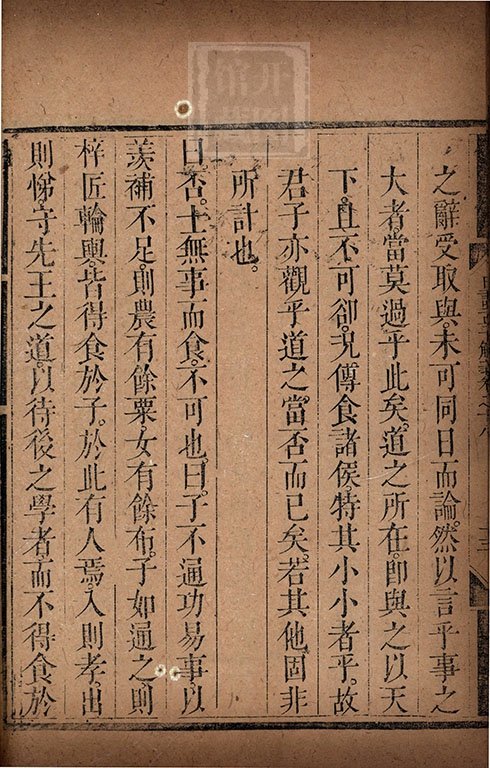 之辭受取與。未可同日而論。然以言乎事之
大者。當莫過乎此矣。道之所在。卽與之以天
下。且不可卻。況傳食諸侯特其小小者乎。故
君子亦觀乎道之當否而已矣。若其他固非
所計也。
曰。否。士無事而食。不可也。曰。子不通功易事。以
羨補不足。則農有餘粟。女有餘布。子如通之。則
梓匠輪輿。皆得食於子。於此有人焉。入則孝。出
則悌。守先王之道。以待後之學者。而不得食於